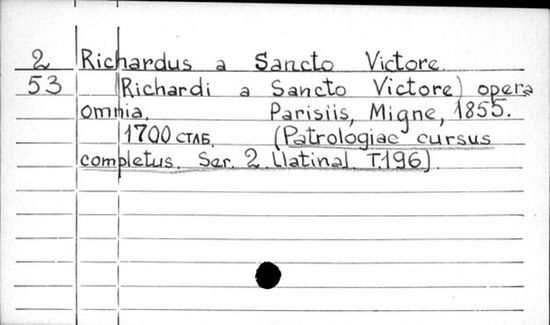 2 Richardus a Sancto Victore.
53 (Richardi a Sancto Victore) opera
omnia. Parisiis, Migne, 1855.
1700 стлб. (Patrologiae cursus
completus. Ser. 2. [latina]. T.196).